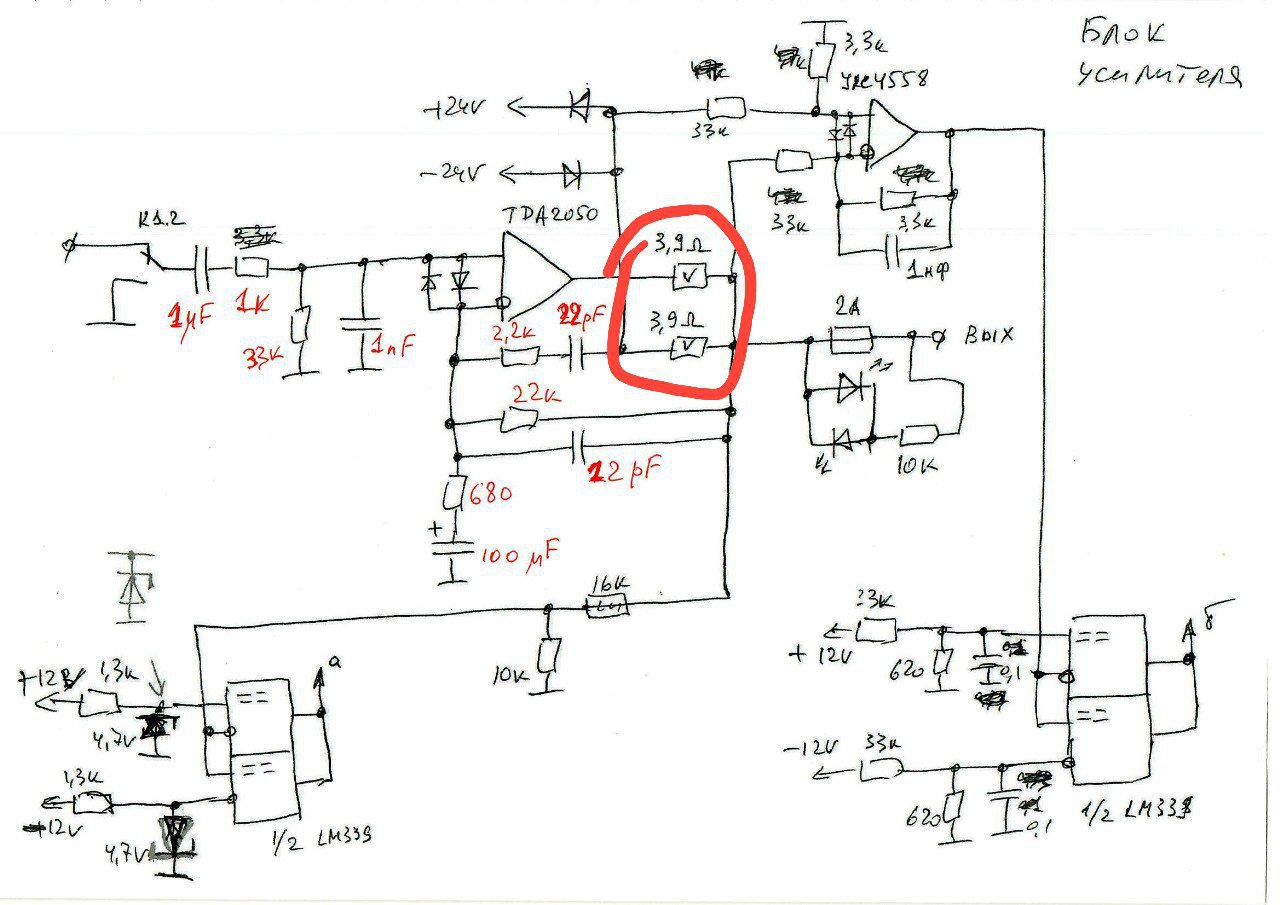 Блок
усилителя
3,3к
JRC4558
+24V
33к
-24V
33к
3,3к
1нф
TDA2050
К1.2
3,9Ω
1µF
1к
33к
1nF
2,2к
22pF
3,9Ω
2А
ВЫХ
22к
12pF
10к
680
+
100 µF
16к
10к
33к
+12V
620
0,1
1,3к
а
4,7V
1,3к
12V
4,7V
1/2 LM339
-12V
33к
620
0,1
1/2 LM339
б